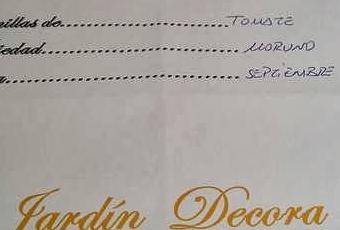 millas de........................... TOMATE
iedad............................... MORUNO
a................................... SEPTIEMBRE
Jardín Decora